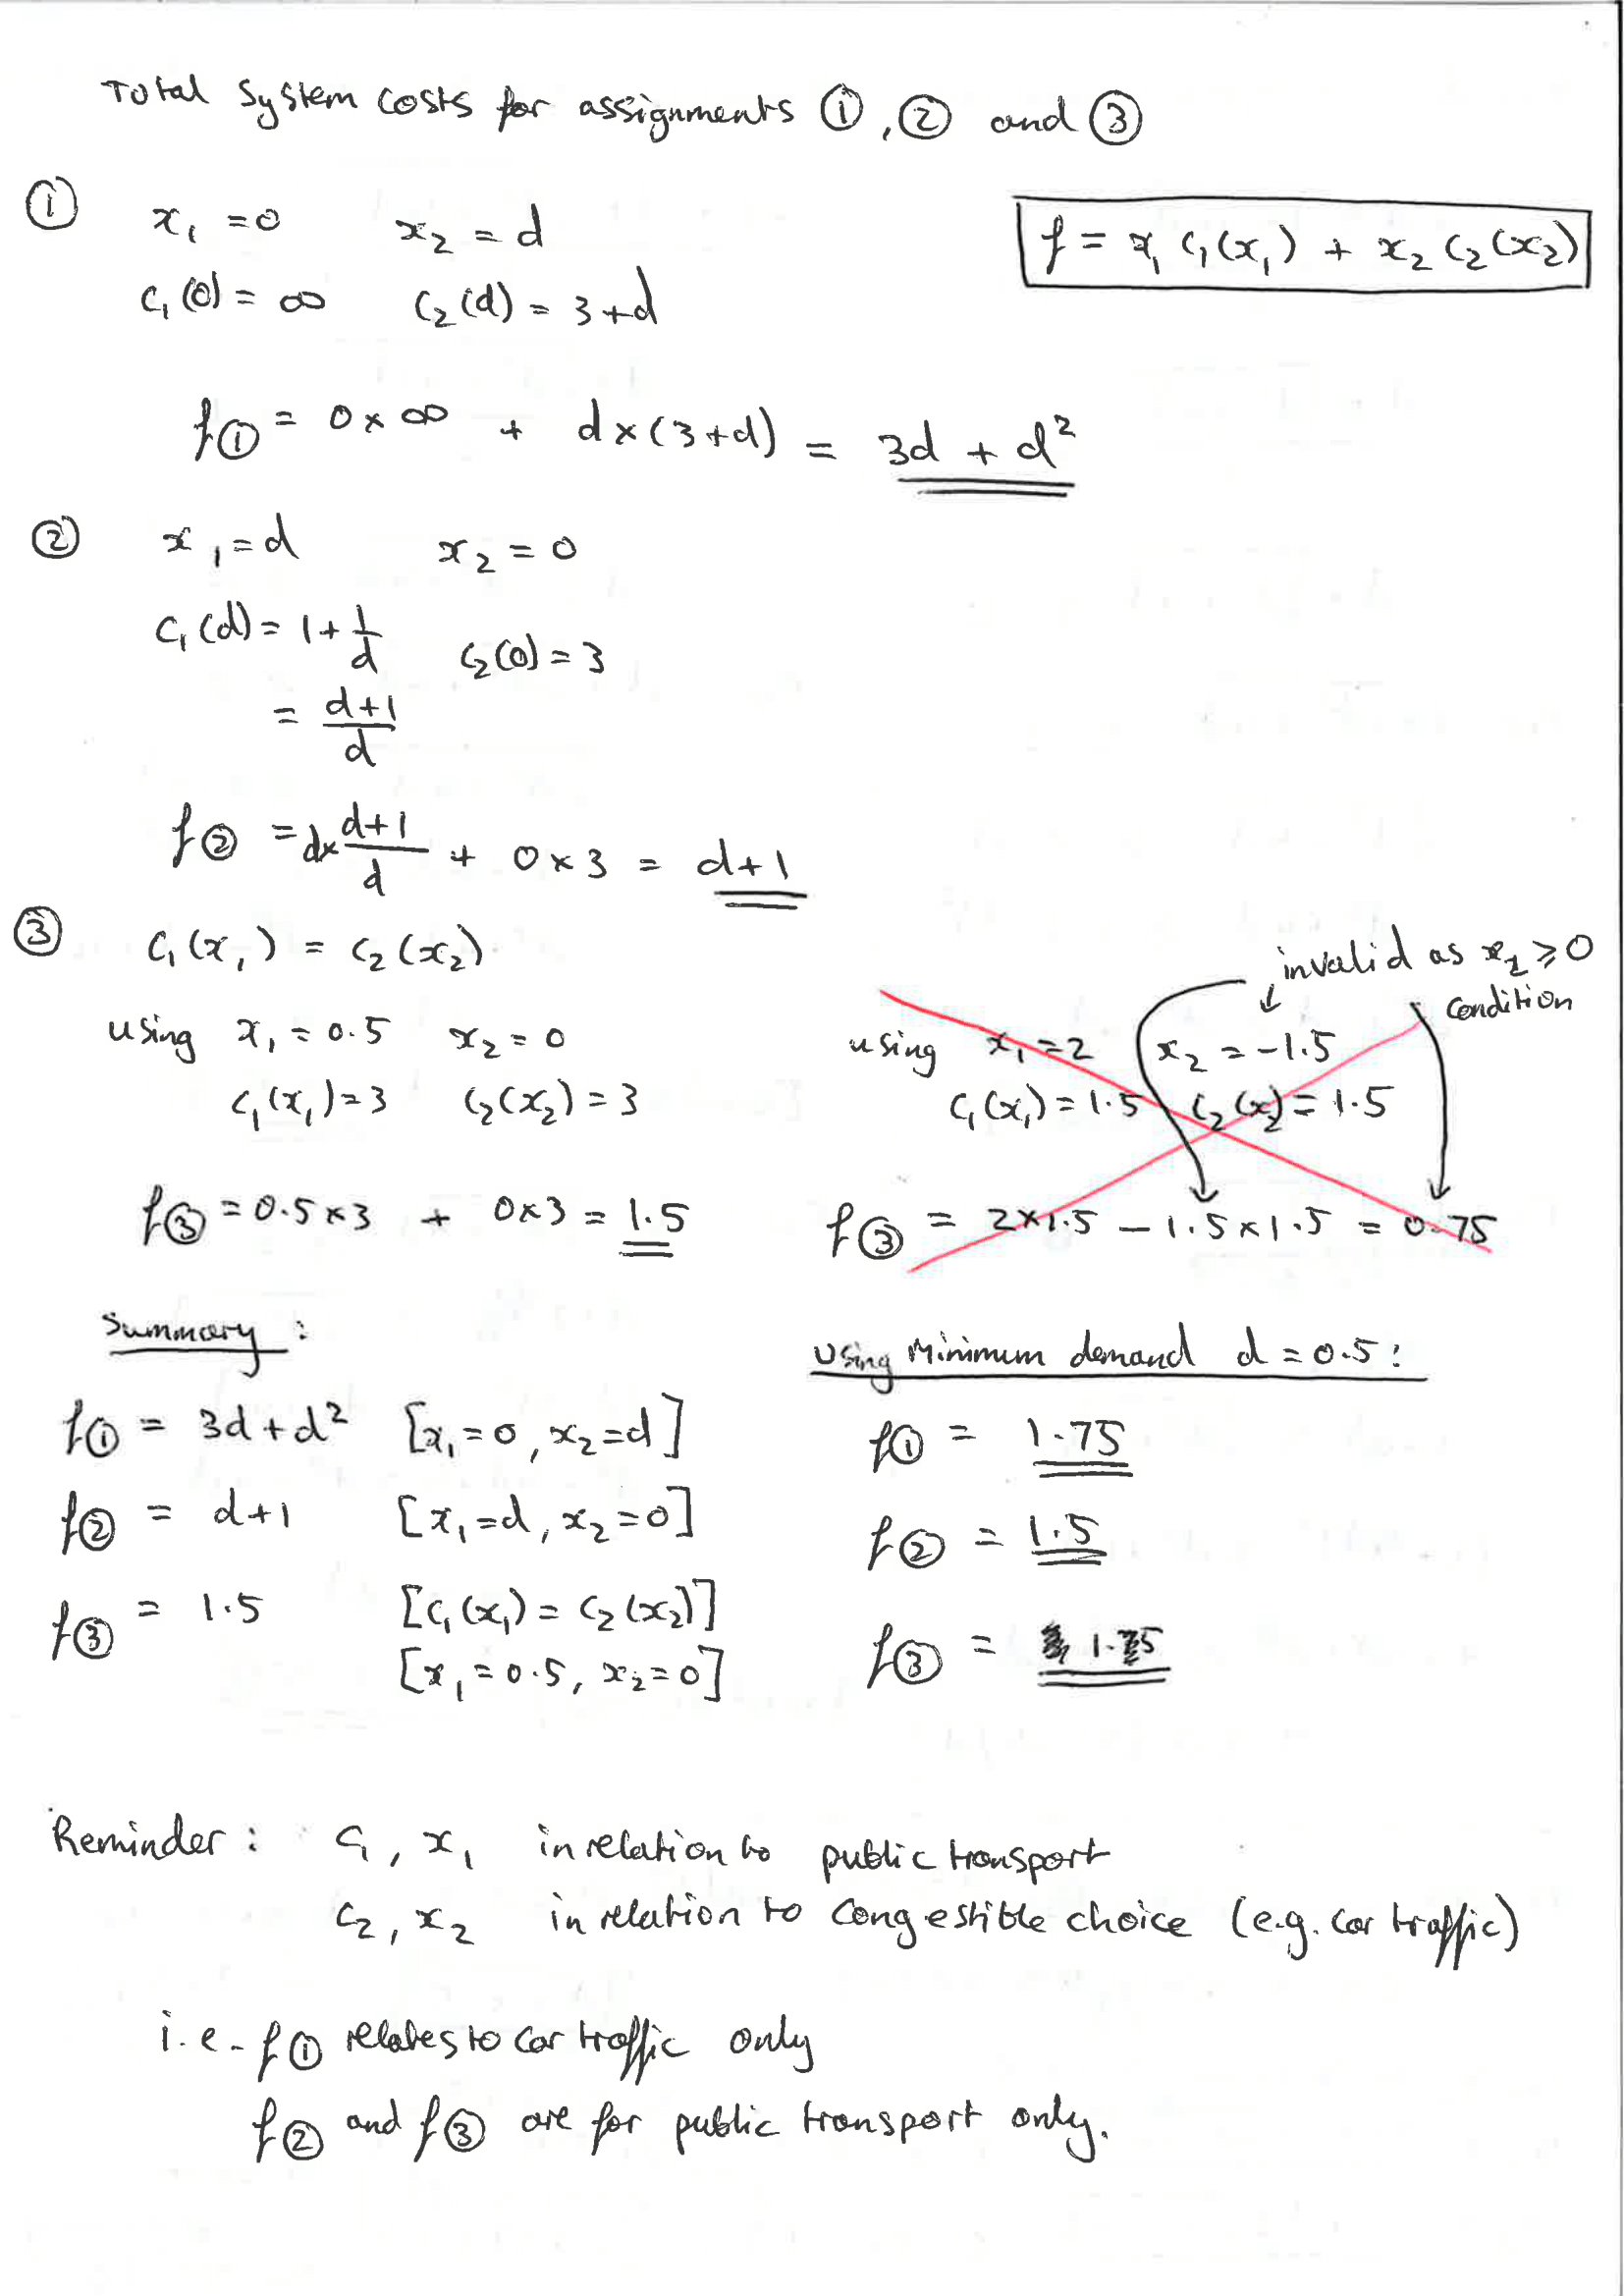 Total System costs for assignments ①, ② and ③
① x₁ = 0 x₂ = d
f = x₁ c₁(x₁) + x₂ c₂(x₂)
c₁(0) = ∞ c₂(d) = 3+d
f① = 0 × ∞ + d×(3+d) = 3d + d²
② x₁ = d x₂ = 0
c₁(d) = 1 + 1/d c₂(0) = 3
= d+1/d
f② = d× d+1/d + 0 × 3 = d+1
③ c₁(x₁) = c₂(x₂)
using x₁ = 0.5 x₂ = 0
c₁(x₁) = 3 c₂(x₂) = 3
f③ = 0.5×3 + 0×3 = 1.5
invalid as x₂ ⩾ 0
condition
using x₁ = 2 x₂ = -1.5
c₁(x₁) = 1.5 c₂(x₂) = 1.5
f③ = 2×1.5 − 1.5×1.5 = 0.75
Summary :
f① = 3d + d² [x₁=0, x₂=d]
f② = d+1 [x₁=d, x₂=0]
f③ = 1.5 [c₁(x₁) = c₂(x₂)]
[x₁ = 0.5, x₂=0]
Using Minimum demand d = 0.5 :
f① = 1.75
f② = 1.5
f③ =
Reminder : c₁, x₁ in relation to public transport
c₂, x₂ in relation to congestible choice (e.g. car traffic)
i.e. f① relates to car traffic only
f② and f③ are for public transport only.